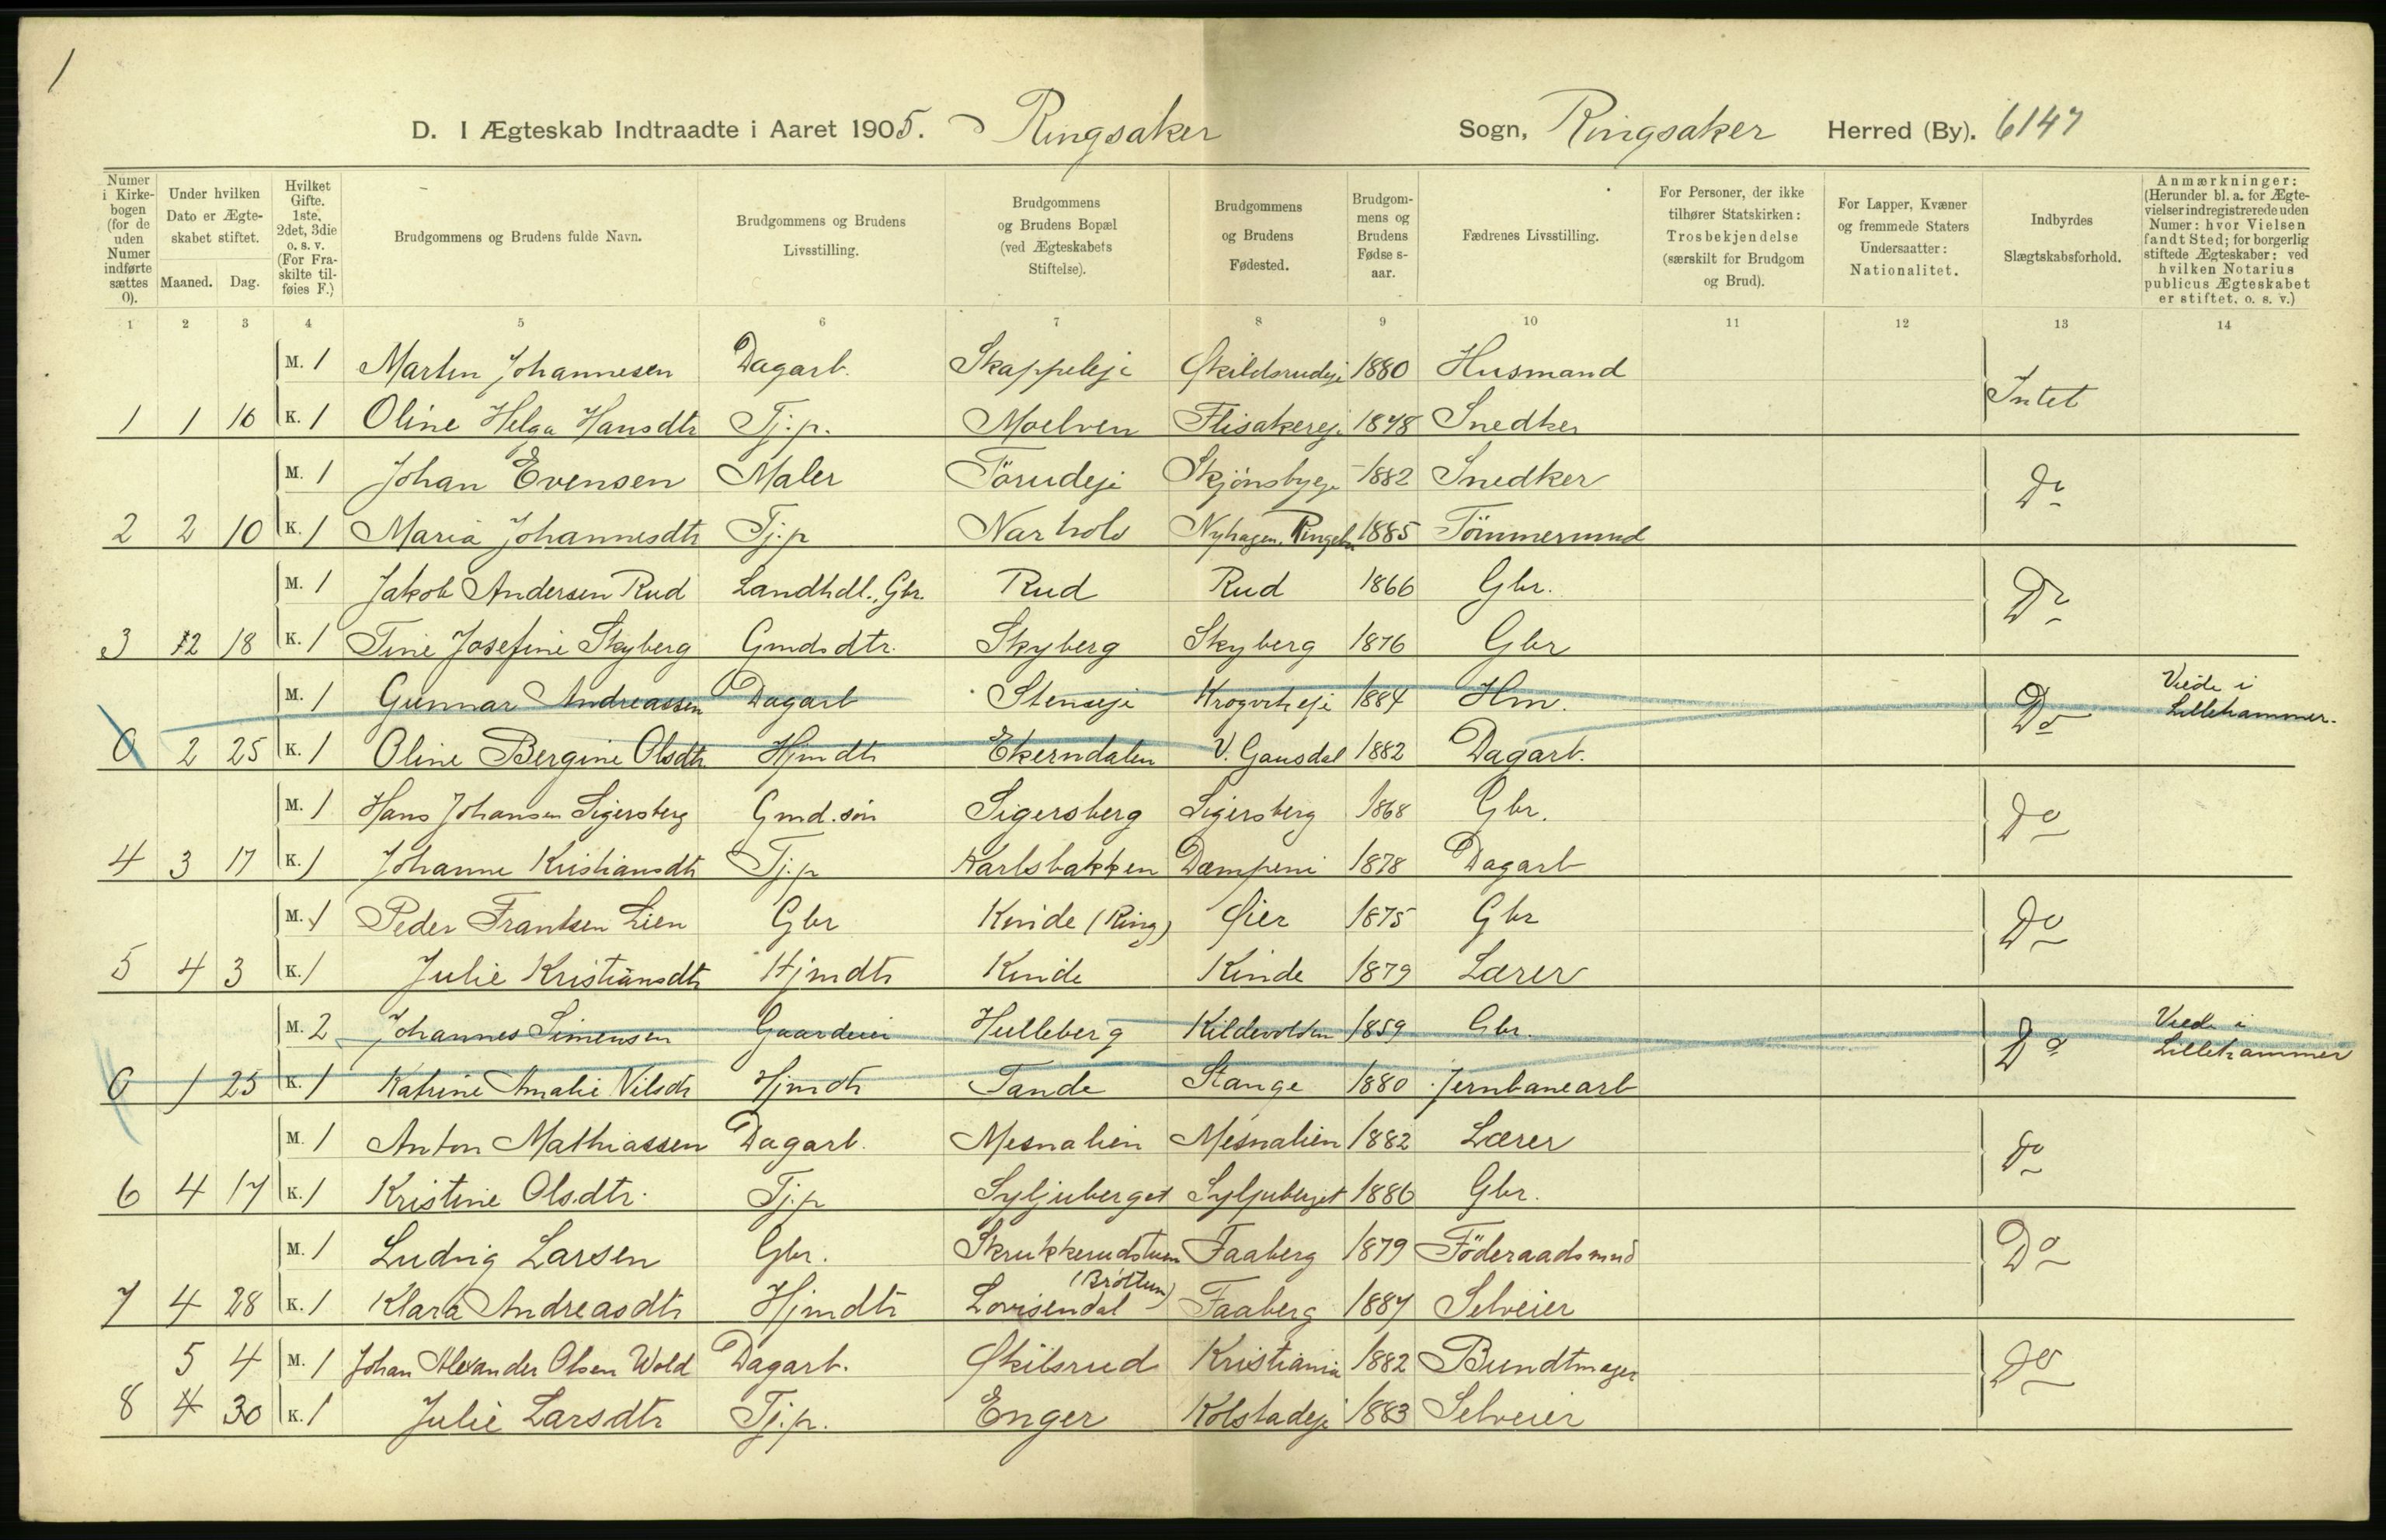 1
D. I Ægteskab Indtraadte i Aaret 1905. Ringsaker Sogn, Ringsaker Herred (By). 6147
Numer i Kirkebogen (for de uden Numer indførte sættes 0).
Under hvilken Dato er Ægteskabet stiftet.
Maaned. Dag.
Hvilket Gifte. 1ste, 2det, 3die o. s. v. (For Fraskilte tilføies F.)
Brudgommens og Brudens fulde Navn.
Brudgommens og Brudens Livsstilling.
Brudgommens og Brudens Bopæl (ved Ægteskabets Stiftelse).
Brudgommens og Brudens Fødested.
Brudgommens og Brudens Fødselsaar.
Fædrenes Livsstilling.
For Personer, der ikke tilhører Statskirken: Trosbekjendelse (særskilt for Brudgom og Brud).
For Lapper, Kvæner og fremmede Staters Undersaatter: Nationalitet.
Indbyrdes Slægtskabsforhold.
Anmærkninger: (Herunder bl. a. for Ægtevielser indregistrerede uden Numer: hvor Vielsen fandt Sted; for borgerlig stiftede Ægteskaber: ved hvilken Notarius publicus Ægteskabet er stiftet. o. s. v.)
1 2 3 4 5 6 7 8 9 10 11 12 13 14
M. 1 Martin Johannesen Dagarb. Skappeleje Økildsrudeje 1880 Husmand Intet
1 1 16 K. 1 Oline Helga Hansdtr Tj.p. Moelven Flisakereje 1848 Snedker
M. 1 Johan Evensen Maler Törudeje Skjönsbyeje 1882 Snedker Do
2 2 10 K. 1 Maria Johannesdtr Tj.p Narholo Nyhagen, Ringebu 1885 Tömmermand
M. 1 Jakob Andersen Rud Landhdl., Gbr. Rud Rud 1866 Gbr. Do
3 2 18 K. 1 Tine Josefine Skyberg Gmdsdtr. Skyberg Skyberg 1876 Gbr
M. 1 Gunnar Andreassen Dagarb Stenseje 1884 Hm. Do Viede i Lillehammer.
0 2 25 K. 1 Oline Bergine Olsdtr. Hjmdtr Ekerndalen V. Gausdal 1882 Dagarb.
M. 1 Hans Johansen Sigersberg Gmd.sön Sigersberg Sigersberg 1868 Gbr. Do
4 3 17 K. 1 Johanne Kristiansdtr Tj.p Karlsbakken Dæmpeni 1878 Dagarb
M. 1 Peder Frantsen Lien Gbr Kinde (Ring) Øier 1875 Gbr Do
5 4 3 K. 1 Julie Kristiansdtr Hjmdtr Kinde Kinde 1879 Lærer
M. 2 Johannes Simensen Gaardeier Hulleberg Kildevolden 1859 Gbr. Do Viede i Lillehammer
0 1 25 K. 1 Katrine Amalie Nilsdtr Hjmdtr Tande Stange 1880 Jernbanearb
M. 1 Anton Mathiassen Dagarb. Mesnalien Mesnalien 1882 Lærer Do
6 4 17 K. 1 Kristine Olsdtr. Tj.p Syljuberget Syljuberget 1886 Gbr.
M. 1 Ludvig Larsen Gbr. Skrukkerudstuen Faaberg 1879 Föderaadsmnd Do
(Bröttum)
7 4 28 K. 1 Klara Andreasdtr Hjmdtr Lovisendal Faaberg 1887 Selveier
5 4 M. 1 Johan Alexander Olsen Wold Dagarb. Økilsrud Kristiania 1882 Bundtmager Do
8 4 30 K. 1 Julie Larsdtr Tj.p. Enger Kolstadeje 1883 Selveier